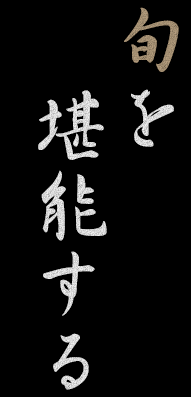 旬を
堪能する